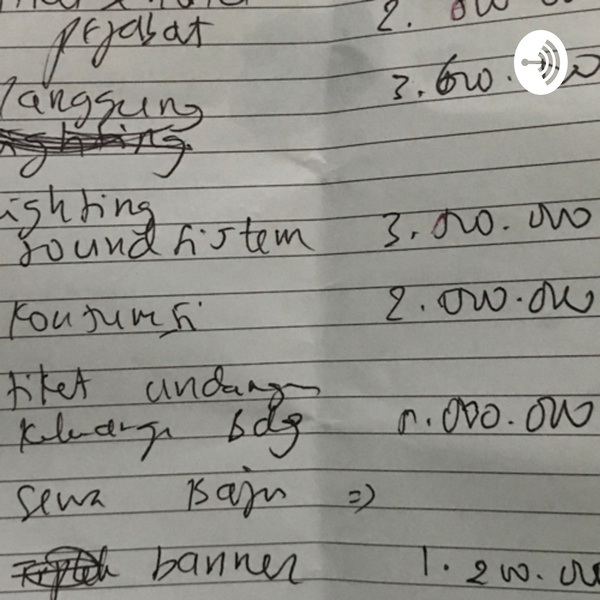 pejabat 2.000.000
Panggung 3.600.000
lighting
sound sistem 3.000.000
Konsumsi 2.000.000
tiket undangan
Keluarga bdg .000.000
sewa Baju =>
banner 1.200.00